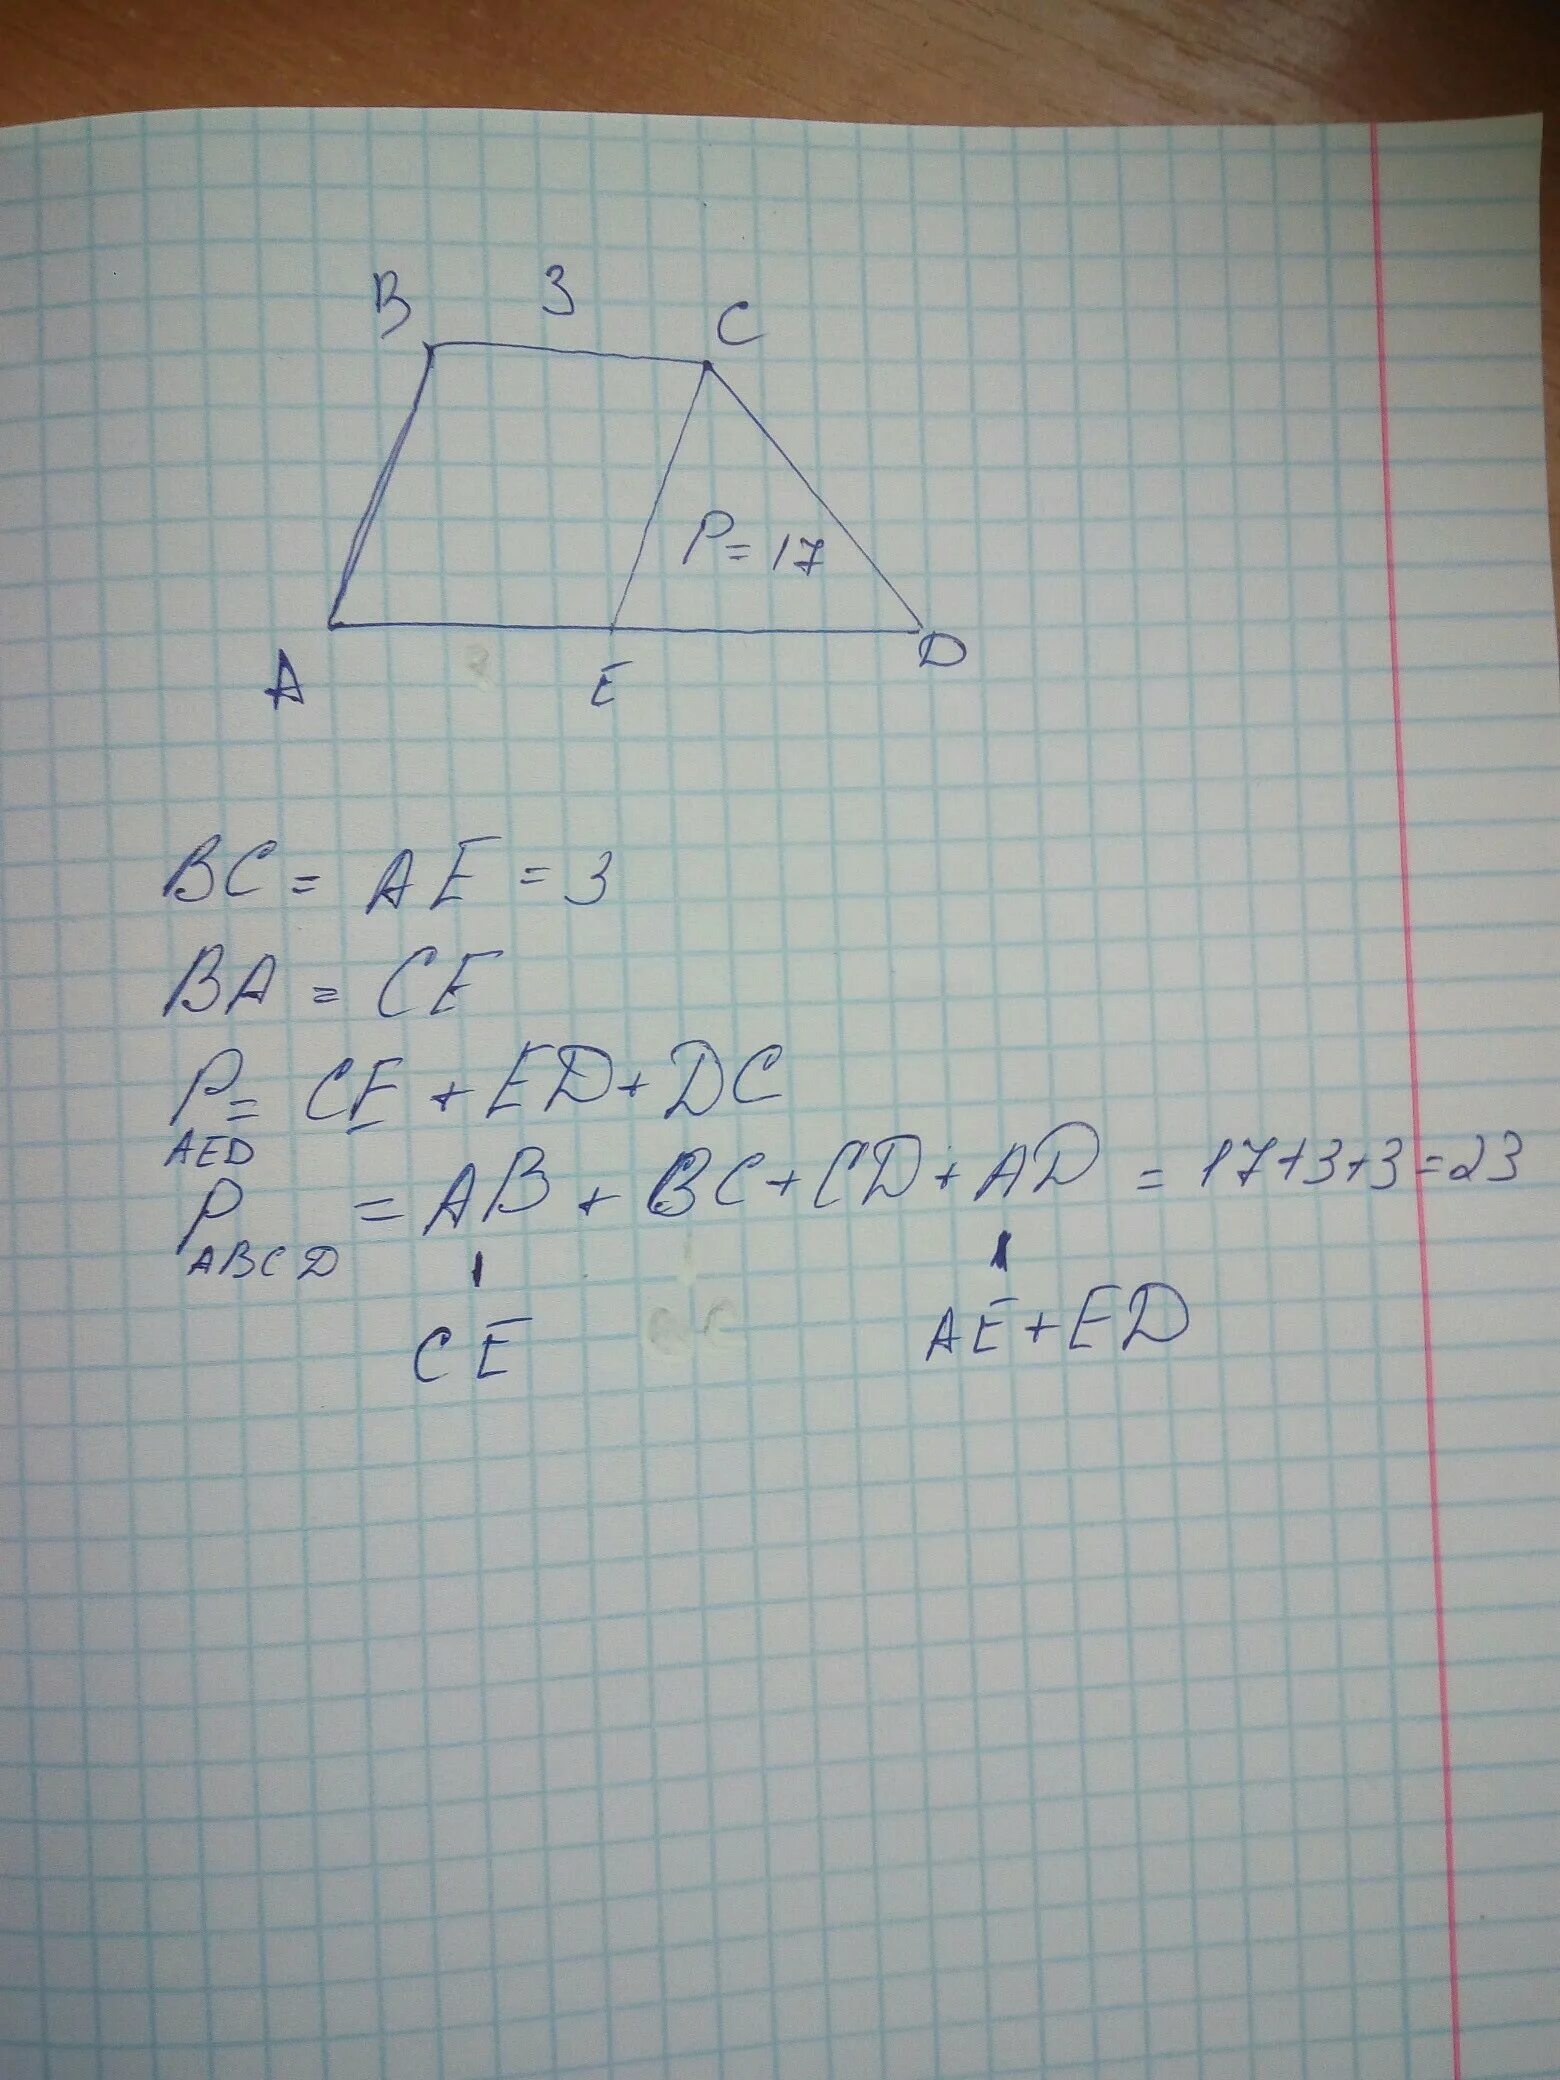 B 3 C
P = 17
A E D
BC = AE = 3
BA = CE
P = CE + ED + DC
AED
P = AB + BC + CD + AD = 17+3+3=23
ABCD
CE AE + ED